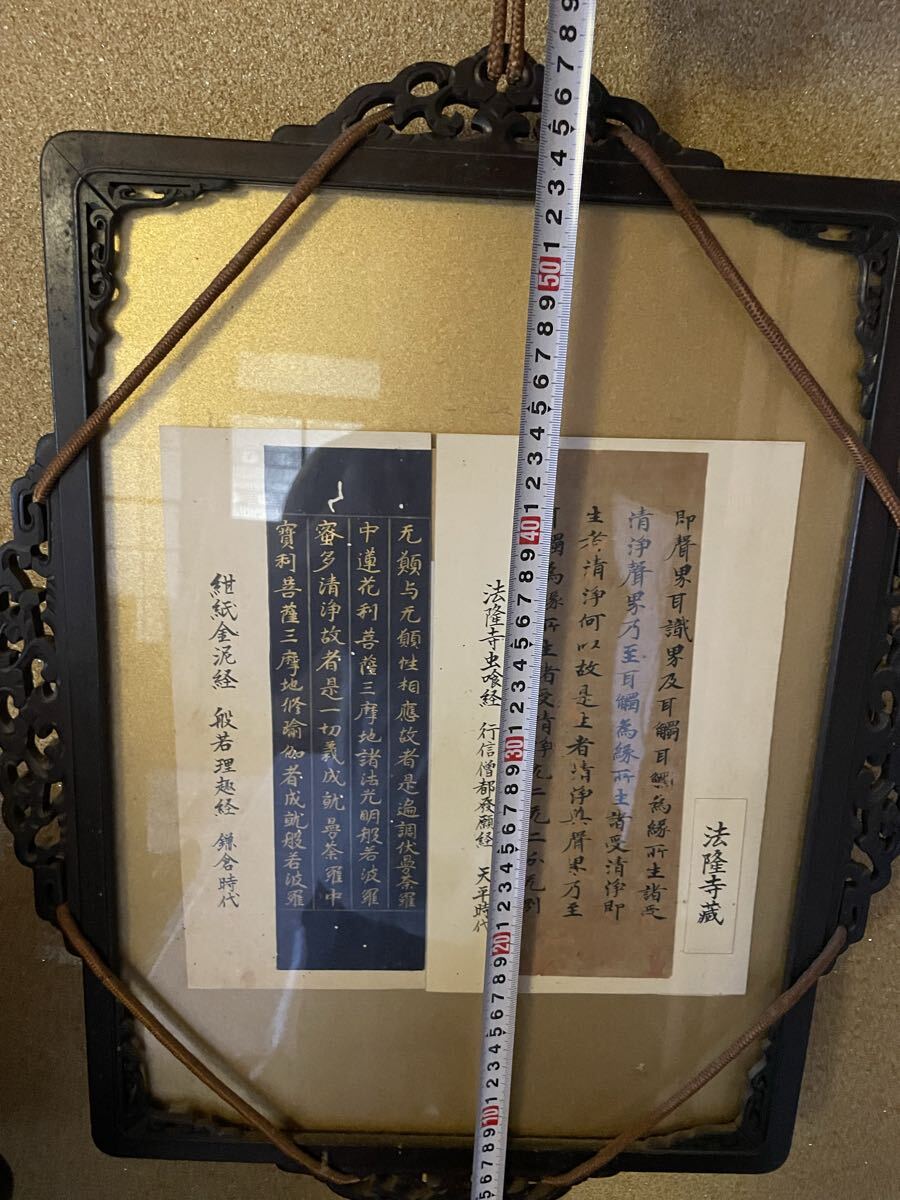 法隆寺藏
即聲界耳識界及耳觸耳觸為緣所生諸受
清淨聲界乃至耳觸為緣所生諸受清淨即
生者清淨何以故是生者清淨與聲界乃至
為緣所生者受清淨无二无二分无別
法隆寺虫喰経 行信僧都發願経 天平時代
无顛与无顛性相應故者是遍調伏曼荼羅
中蓮花利菩薩三摩地諸法光明般若波羅
蜜多清淨故者是一切義成就曼荼羅中
寶利菩薩三摩地修瑜伽者成就般若波羅
紺紙金泥経 般若理趣経 鎌倉時代
9 8 7 6 5 4 3 2 1 50 9 8 7 6 5 4 3 2 1 40 9 8 7 6 5 4 3 2 1 30 9 8 7 6 5 4 3 2 1 20 9 8 7 6 5 4 3 2 1 10 9 8 7 6 5